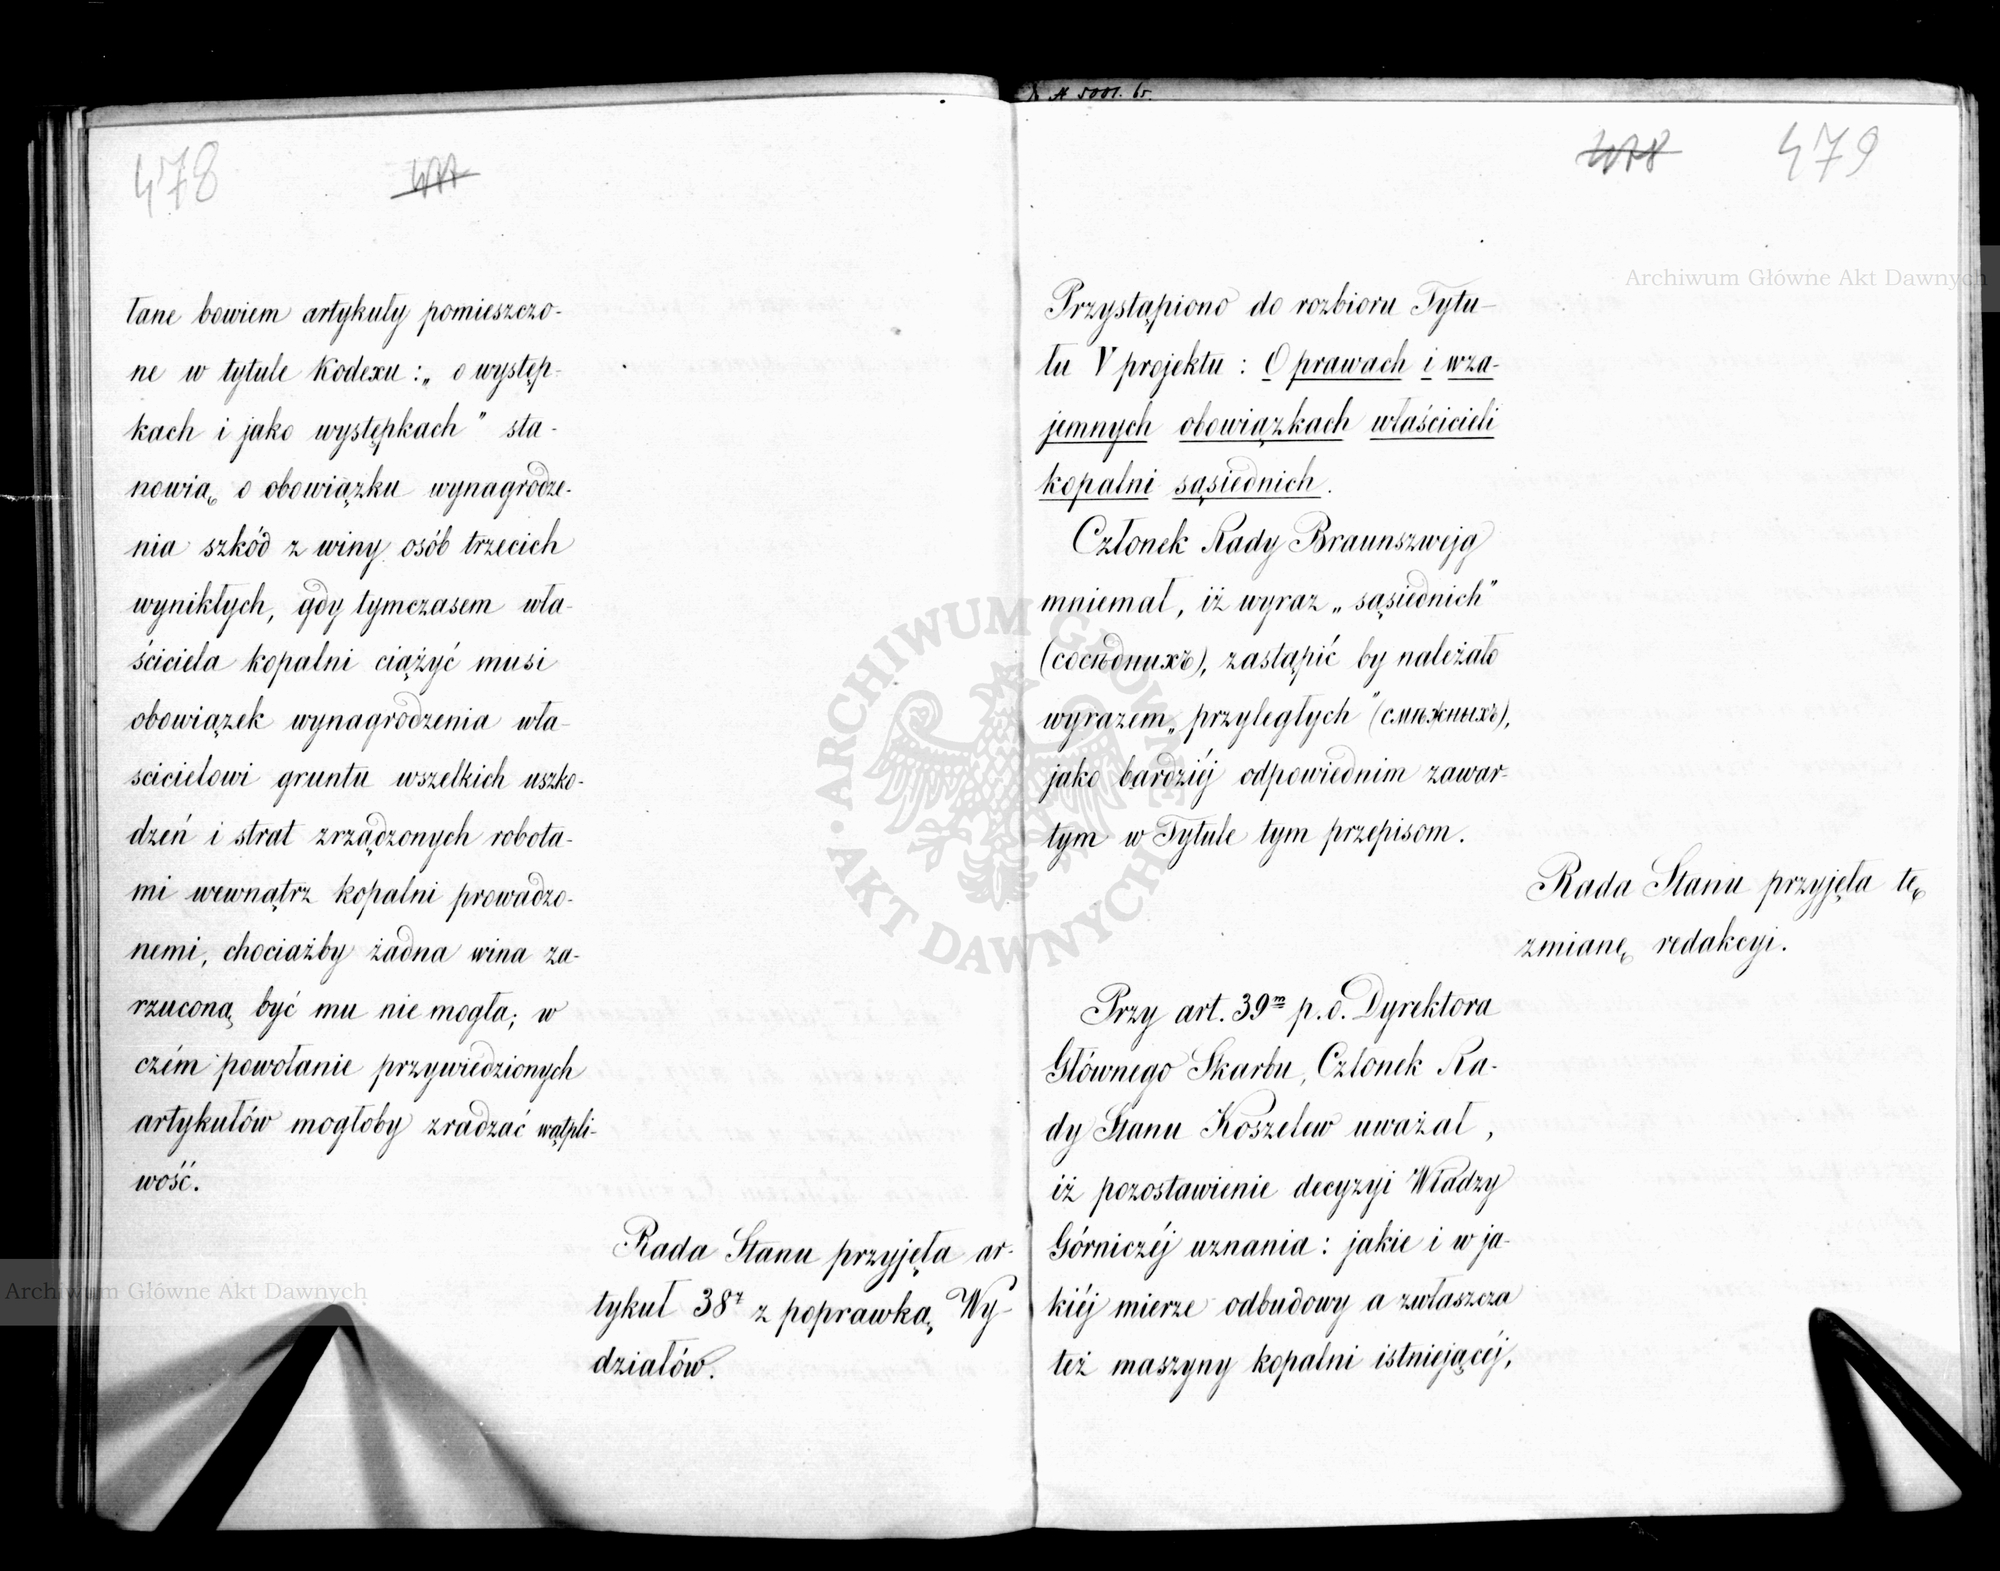 478
477
łane bowiem artykuły pomieszczo-
ne w tytule Kodexu: „o występ-
kach i jako występkach” sta-
nowią o obowiązku wynagrodze-
nia szkód z winy osób trzecich
wynikłych, gdy tymczasem wła-
ściciela kopalni ciążyć musi
obowiązek wynagrodzenia wła-
scicielowi gruntu wszelkich uszko-
dzeń i strat zrządzonych robota-
mi wewnątrz kopalni prowadzo-
nemi, chociażby żadna wina za-
rzuconą być mu nie mogła; w
czém powołanie przywiedzionych
artykułów mogłoby zradzać wątpli-
wość.
Rada Stanu przyjęła ar-
tykuł 38ʸ z poprawką Wy-
działów.
478
479
Przystąpiono do rozbioru Tytu-
łu V projektu: O prawach i wza-
jemnych obowiązkach właścicieli
kopalni sąsiednich.
Członek Rady Braunszwejg
mniemał, iż wyraz „sąsiednich”
(сосѣднихъ), zastąpić by należało
wyrazem „przyległych” (смѣжныхъ),
jako bardziéj odpowiednim zawar-
tym w Tytule tym przepisom.
Rada Stanu przyjęła tę
zmianę redakcyi.
Przy art. 39ᵐ p.o. Dyrektora
Głównego Skarbu, Członek Ra-
dy Stanu Koszelew uważał,
iż pozostawienie decyzyi Władzy
Górniczéj uznania: jakie i w ja-
kiéj mierze odbudowy a zwłaszcza
też maszyny kopalni istniejącéj,
Archiwum Główne Akt Dawnych
Archiwum Główne Akt Dawnych
ARCHIWUM GŁÓWNE AKT DAWNYCH